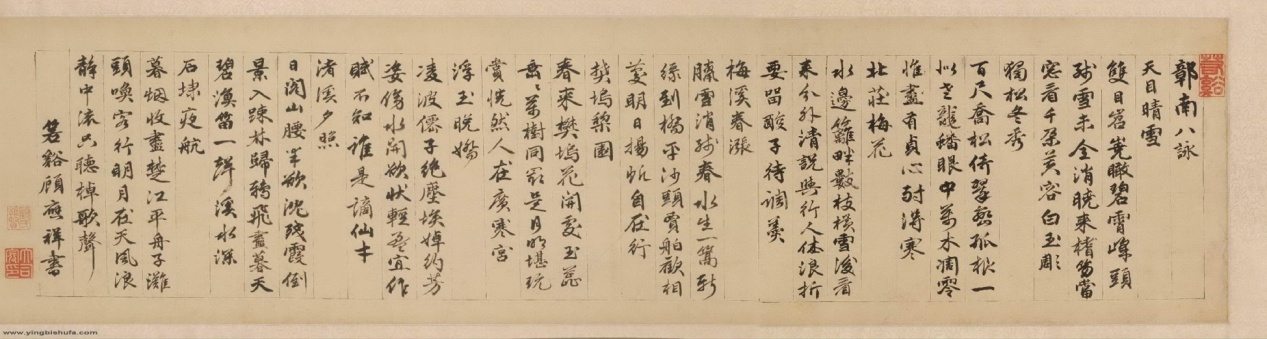 鄣南八詠
天目晴雪
雙目岧嶤瞰碧霄峰頭
殘雪未全消曉來楮笏當
窓看千朶芙容白玉彫
獨松冬秀
百尺喬松倚翠巒孤根一
似老龍蟠眼中萬木凋零
惟盡有貞心耐得寒
北莊梅花
水邊籬畔數枝橫雪後看
來分外清說與行人休浪折
要留酸子待調羹
梅溪春漲
臘雪消殘春水生一篙新
綠到橋平沙頭賈舶歡相
明日揚帆自在行
樊塢梨園
春來樊塢花開處玉蕊
萬樹同最是月明堪玩
賞恍然人在廣寒宮
浮玉晚嬌
凌波儒子絕塵埃婥約芳
姿傍水開欲狀輕盈宜作
賦不知誰是謫仙才
渚溪夕照
日閣山腰半欲沈殘霞倒
景入疎林歸鴉飛盡暮天
碧漁笛一聲溪水深
石埭夜航
暮烟收盡楚江平舟子灘
頭喚客行明月在天風浪
靜中流只聽棹歌聲
箬谿顧應祥書
www.yingbishufa.com